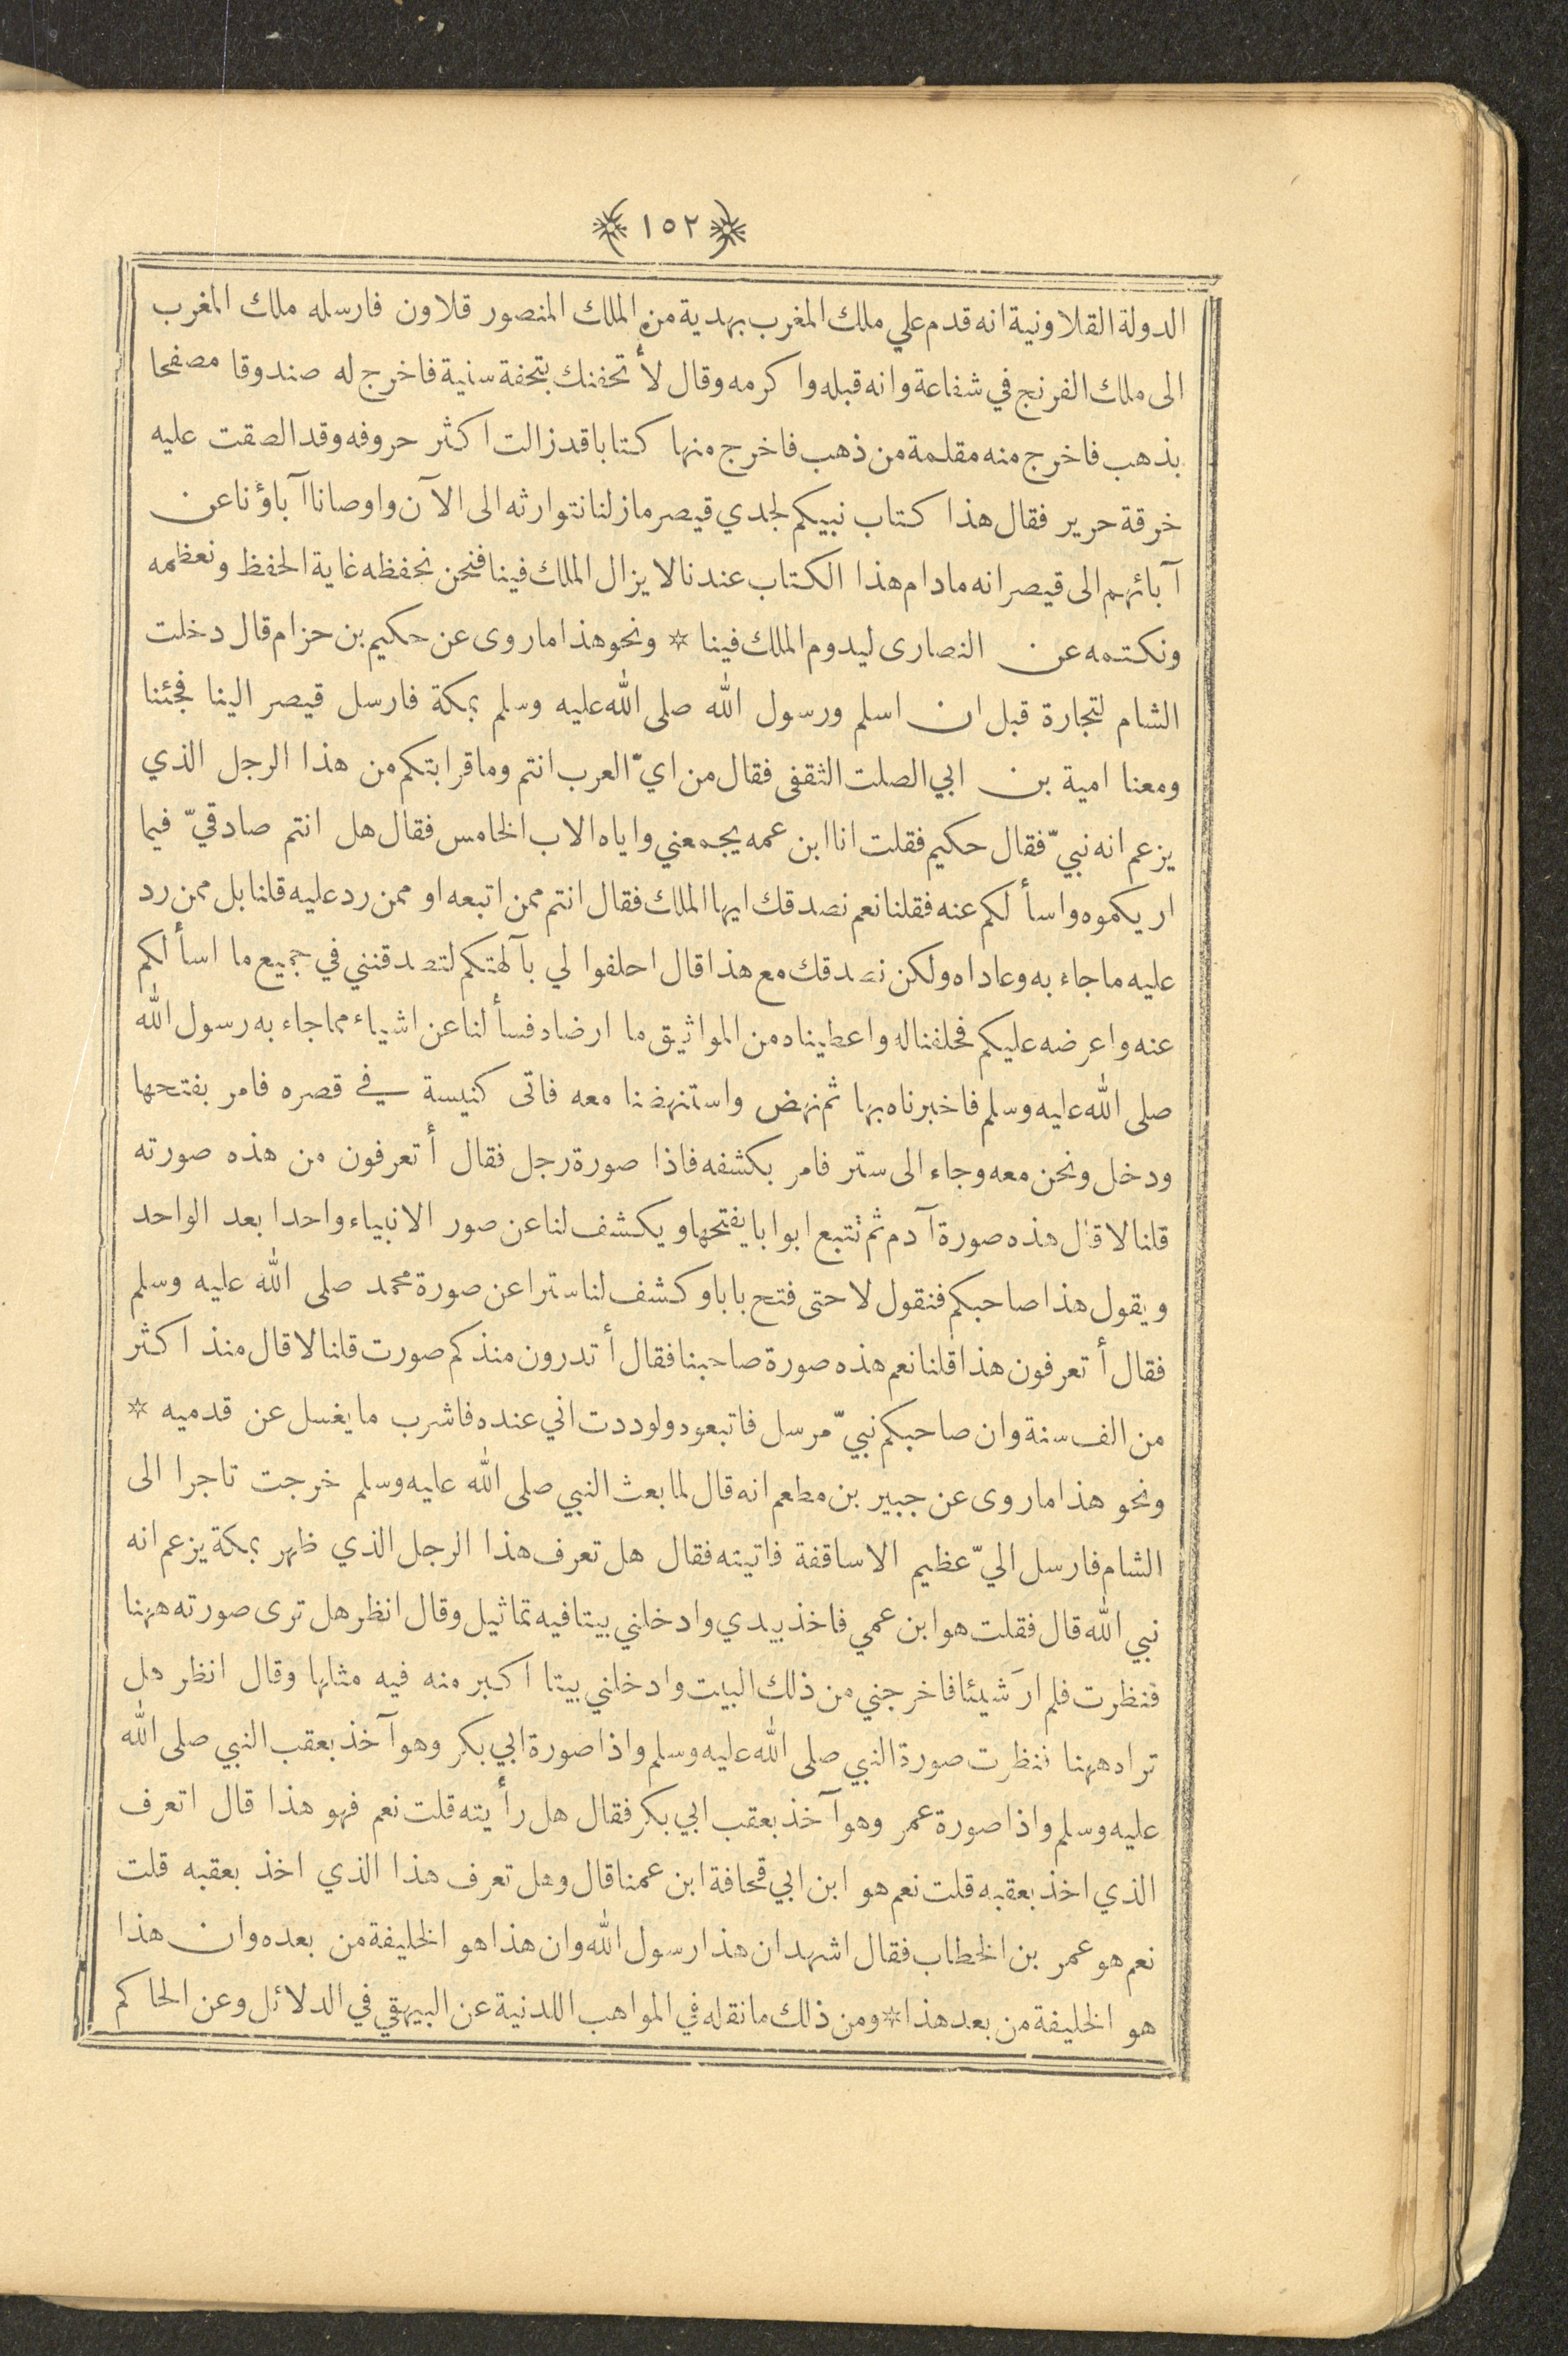 ١٥٢
الدولة القلاونية انه قدم علي ملك المغرب بهدية من الملك المنصور قلاون فارسله ملك المغرب
الى ملك الفرنج في شفاعة وانه قبله واكرمه وقال لأتحفنك بتحفة سنية فاخرج له صندوقا مصفحا
بذهب فاخرج منه مقلمة من ذهب فاخرج منها كتابا قد زالت اكثر حروفه وقد الصقت عليه
خرقة حرير فقال هذا كتاب نبيكم لجدي قيصر ما زلنا نتوارثه الى الآن واوصانا آباؤنا عن
آبائهم الى قيصر انه ما دام هذا الكتاب عندنا لا يزال الملك فينا فنحن نحفظه غاية الحفظ ونعظمه
ونكتمه عن النصارى ليدوم الملك فينا * ونحو هذا ما روى عن حكيم بن حزام قال دخلت
الشام لتجارة قبل ان اسلم ورسول الله صلى الله عليه وسلم بمكة فارسل قيصر الينا فجئنا
ومعنا امية بن ابي الصلت الثقفى فقال من ايّ العرب انتم وما قرابتكم من هذا الرجل الذي
يزعم انه نبيّ فقال حكيم فقلت انا ابن عمه يجمعني واياه الاب الخامس فقال هل انتم صادقيّ فيما
اريكموه واسألكم عنه فقلنا نعم نصدقك ايها الملك فقال انتم ممن اتبعه او ممن رد عليه قلنا بل ممن رد
عليه ما جاء به وعاداه ولكن نصدقك مع هذا قال احلفوا لي بآلهتكم لتصدقنني في جميع ما اسألكم
عنه واعرضه عليكم فحلفنا له واعطيناه من المواثيق ما ارضاه فسألنا عن اشياء مما جاء به رسول الله
صلى الله عليه وسلم فاخبرناه بها ثم نهض واستنهضنا معه فاتى كنيسة في قصره فامر بفتحها
ودخل ونحن معه وجاء الى ستر فامر بكشفه فاذا صورة رجل فقال أتعرفون من هذه صورته
قلنا لا قال هذه صورة آدم ثم نتبع ابوابا يفتحها ويكشف لنا عن صور الانبياء واحدا بعد الواحد
ويقول هذا صاحبكم فنقول لا حتى فتح بابا وكشف لنا سترا عن صورة محمد صلى الله عليه وسلم
فقال أتعرفون هذا قلنا نعم هذه صورة صاحبنا فقال أتدرون منذ كم صورت قلنا لا قال منذ اكثر
من الف سنة وان صاحبكم نبيّ مرسل فاتبعوه ولوددت اني عنده فاشرب ما يغسل عن قدميه *
ونحو هذا ما روى عن جبير بن مطعم انه قال لما بعث النبي صلى الله عليه وسلم خرجت تاجرا الى
الشام فارسل اليّ عظيم الاساقفة فاتيته فقال هل تعرف هذا الرجل الذي ظهر بمكة يزعم انه
نبي الله قال فقلت هو ابن عمي فاخذ بيدي وادخلني بيتا فيه تماثيل وقال انظر هل ترى صورته ههنا
فنظرت فلم ارَ شيئا فاخرجني من ذلك البيت وادخلني بيتا اكبر منه فيه مثلها وقال انظر هل
تراه ههنا فنظرت صورة النبي صلى الله عليه وسلم واذا صورة ابي بكر وهو آخذ بعقب النبي صلى الله
عليه وسلم واذا صورة عمر وهو آخذ بعقب ابي بكر فقال هل رأيته قلت نعم فهو هذا قال اتعرف
الذي اخذ بعقبه قلت نعم هو ابن ابي قحافة ابن عمنا قال وهل تعرف هذا الذي اخذ بعقبه قلت
نعم هو عمر بن الخطاب فقال اشهد ان هذا رسول الله وان هذا هو الخليفة من بعده وان هذا
هو الخليفة من بعد هذا * ومن ذلك ما نقله في المواهب اللدنية عن البيهقي في الدلائل وعن الحاكم